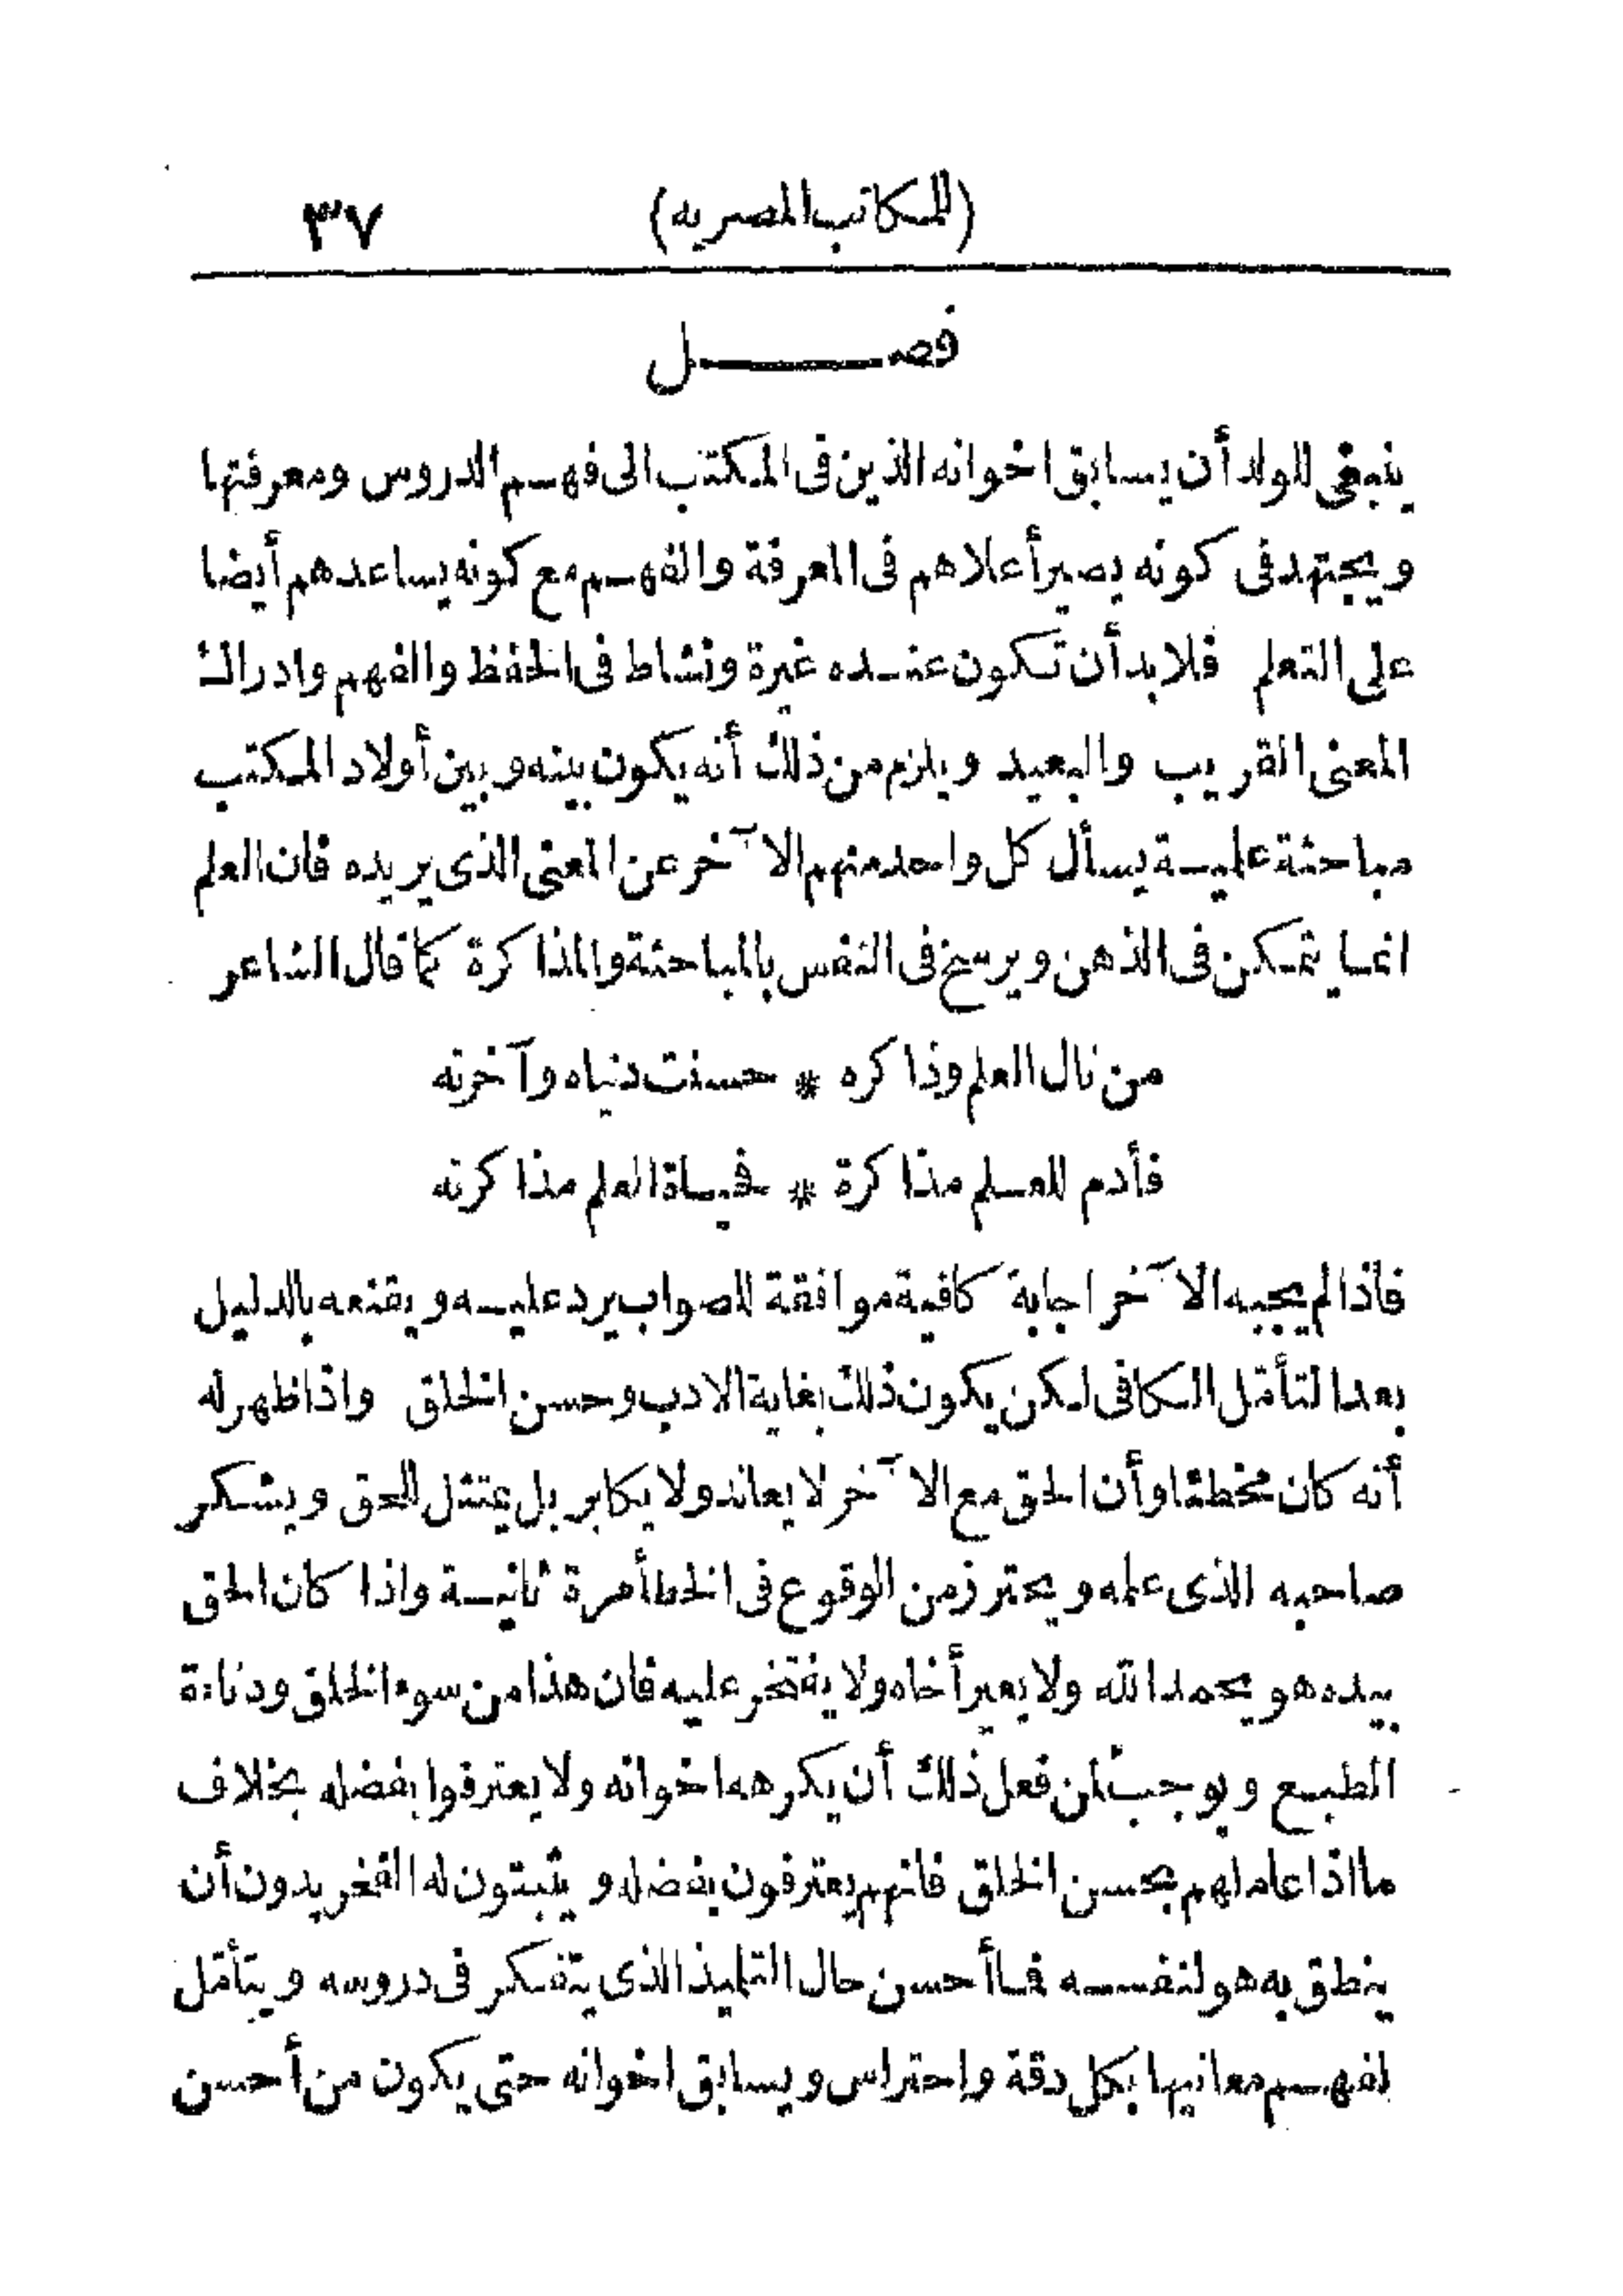 (للمكاتب المصريه) ٣٧
فصل
ينبغى للولد أن يسابق اخوانه الذين فى المكتب الى فهم الدروس ومعرفتها
ويجتهد فى كونه يصير أعلاهم فى المعرفة والفهم مع كونه يساعدهم أيضا
على التعلم فلا بد أن تكون عنده غيرة ونشاط فى الحفظ والفهم وادراك
المعنى القريب والبعيد ويلزم من ذلك أنه يكون بينه وبين أولاد المكتب
مباحثة علمية يسأل كل واحد منهم الآخر عن المعنى الذى يريده فان العلم
انما يتمكن فى الذهن ويرسخ فى النفس بالمباحثة والمذاكرة كما قال الشاعر
من نال العلم وذاكره * حسنت دنياه وآخرته
فأدم للعلم مذاكرة * فحياة العلم مذاكرته
فاذا لم يجيبه الآخر اجابة كافية موافقة للصواب يرد عليه ويقنعه بالدليل
بعد التأمّل الكافى لكن يكون ذلك بغاية الادب وحسن الخلق واذا ظهر له
أنه كان مخطئا وأن الحق مع الآخر لا يعاند ولا يكابر بل يمتثل للحق ويشكر
صاحبه الذى علمه ويحترز من الوقوع فى الخطأ مرة ثانية واذا كان الحق
بيده هو يحمد الله ولا يعير أخاه ولا يفتخر عليه فان هذا من سوء الخلق ودناءة
الطبع ويوجب لمن فعل ذلك أن يكرهه اخوانه ولا يعترفوا بفضله بخلاف
ما اذا عاملهم بحسن الخلق فانهم يعترفون بفضله ويثبتون له الفخر بدون أن
ينطق به هو لنفسه فما أحسن حال التلميذ الذى يتفكر فى دروسه ويتأمّل
لفهم معانيها بكل دقة واحتراس ويسابق اخوانه حتى يكون من أحسن